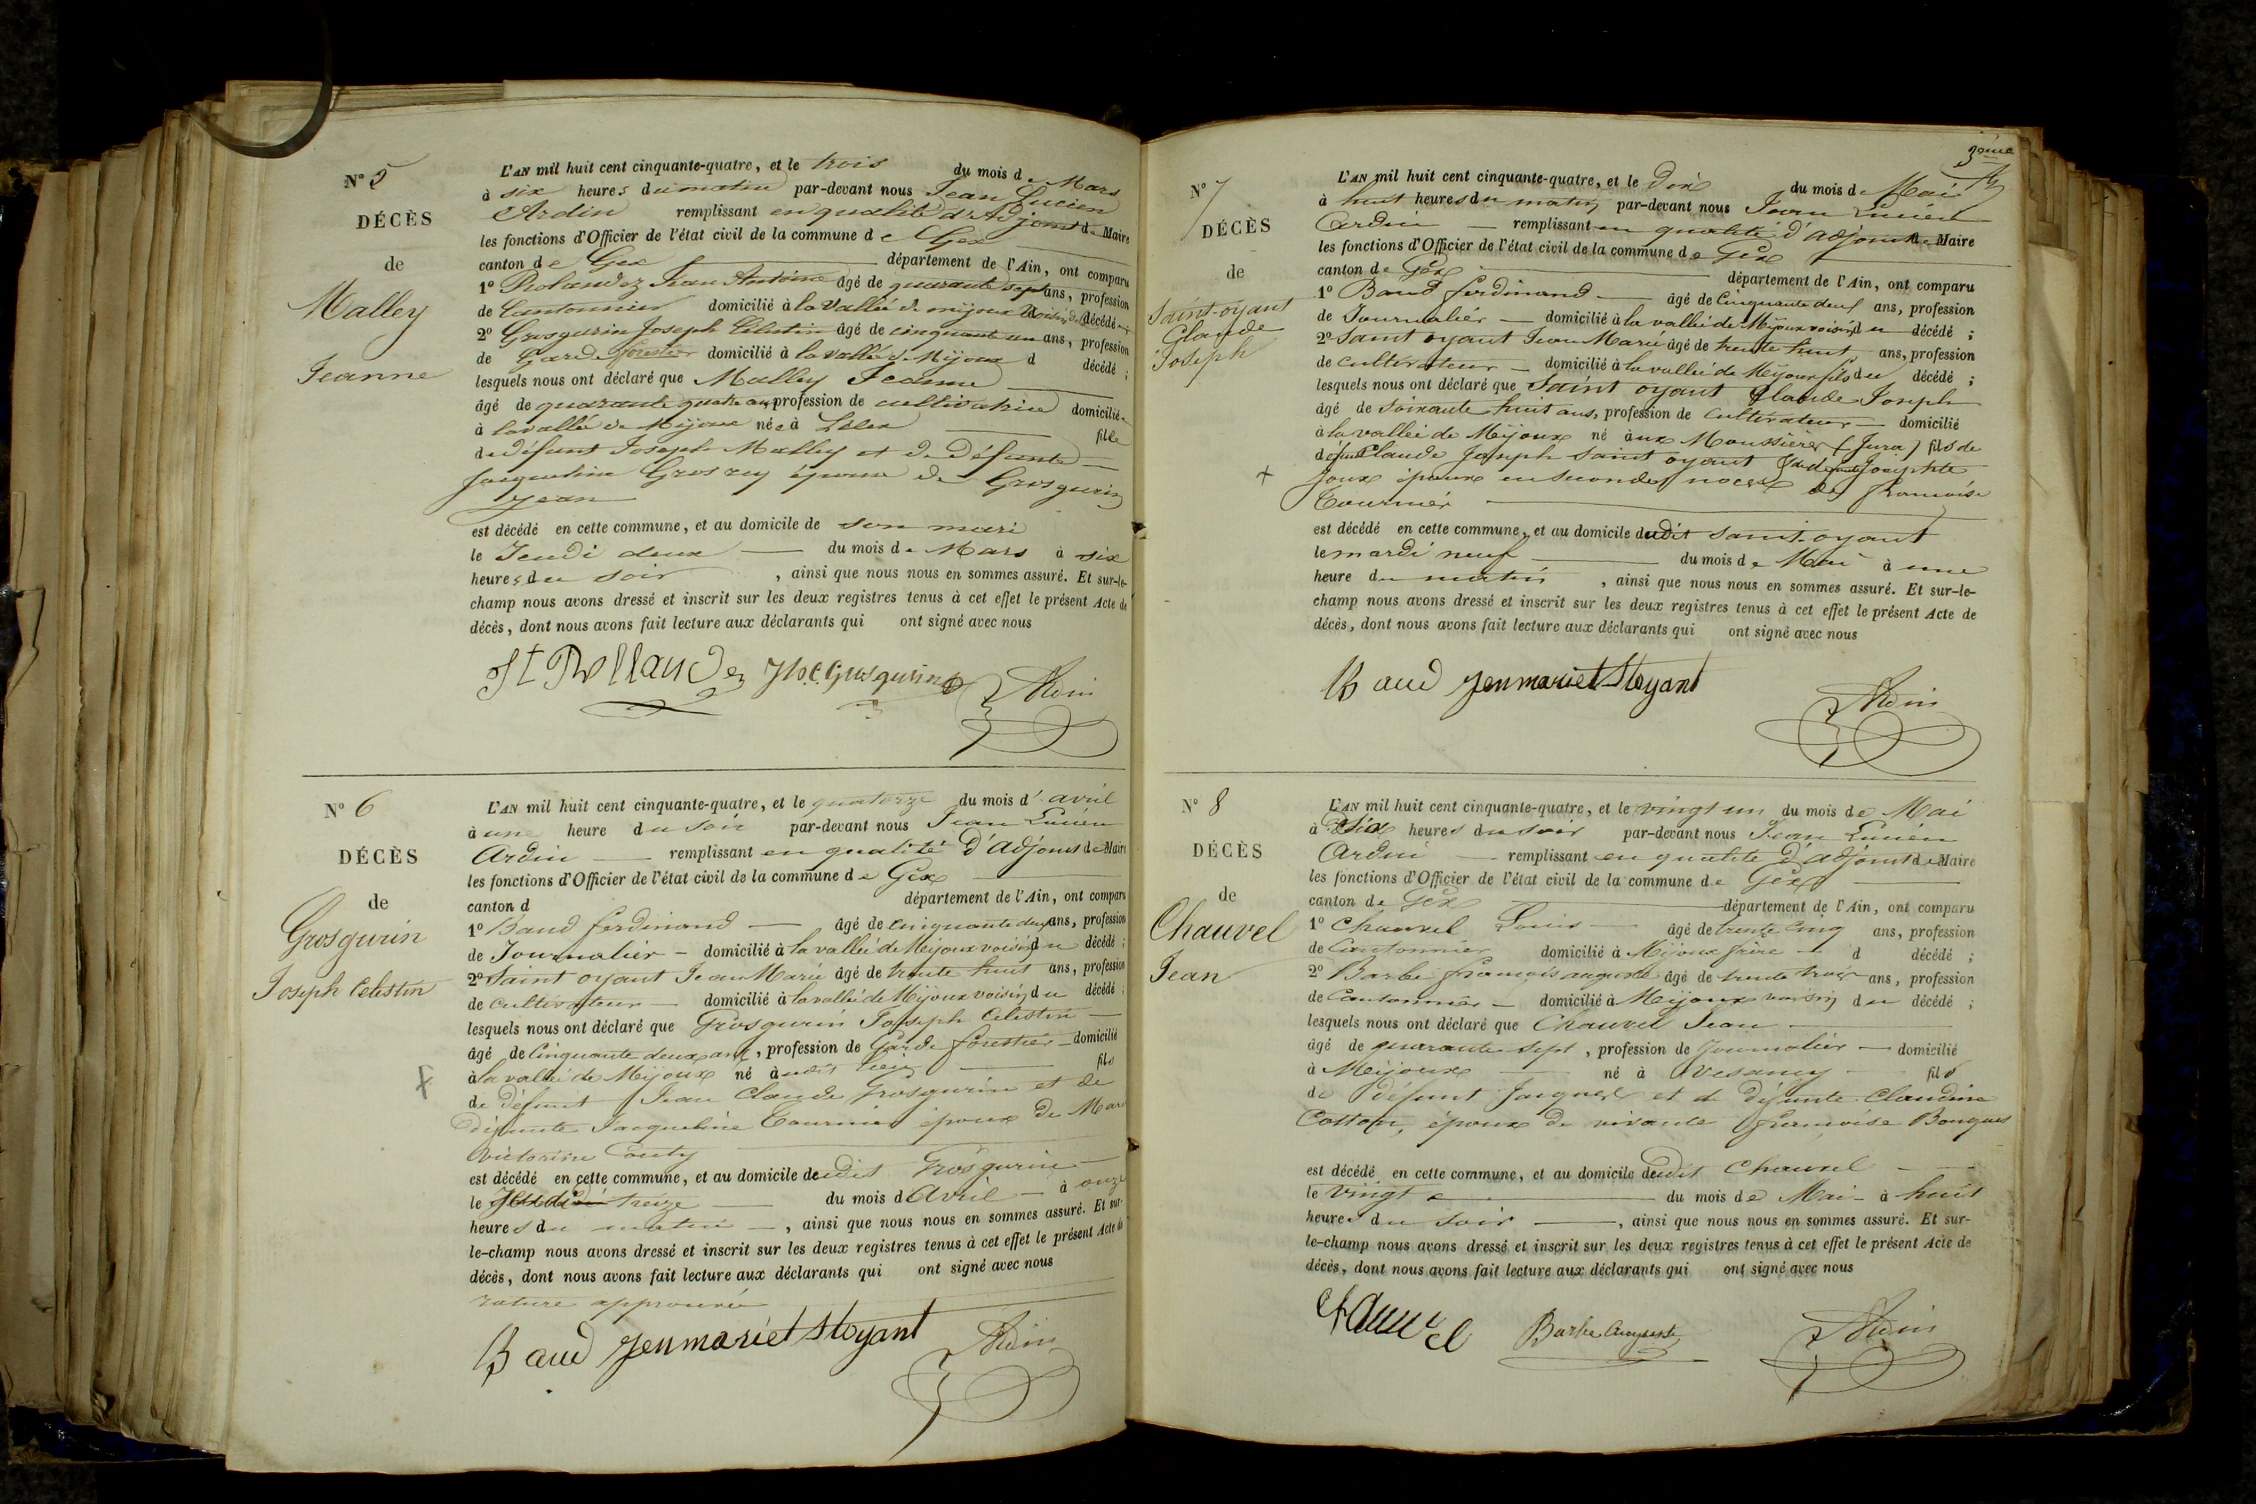 N° 5
DÉCÈS
de
Malley
Jeanne
L'AN mil huit cent cinquante-quatre, et le trois du mois de Mars
à six heures du matin par-devant nous Jean Lucien
Ardin remplissant en qualité d'Adjoint de Maire
les fonctions d'Officier de l'état civil de la commune de Gex
canton de Gex département de l'Ain, ont comparu
1° Rolandez Jean Antoine âgé de quarante sept ans, profession
de Cantonnier domicilié à la Vallée de mijoux voisin de décédé
2° Grosgurin Joseph Célestin âgé de cinquante un ans, profession
de Garde forestier domicilié à la vallée de Mijoux d décédé ;
lesquels nous ont déclaré que Malley Jeanne
âgé de quarante quatre ans, profession de cultivatrice domiciliée
à la vallée de Mijoux née à Lélex fille
de défunt Joseph Malley et de Défunte
Jacqueline Grosrey épouse de Grosgurin
Jean
est décédé en cette commune, et au domicile de son mari
le Jeudi deux du mois de Mars à six
heures du soir , ainsi que nous nous en sommes assuré. Et sur-le-
champ nous avons dressé et inscrit sur les deux registres tenus à cet effet le présent Acte de
décès, dont nous avons fait lecture aux déclarants qui ont signé avec nous
Rollandez Grosgurin Ardin
N° 6
DÉCÈS
de
Grosgurin
Joseph Celestin
L'AN mil huit cent cinquante-quatre, et le quatorze du mois d'avril
à une heure du soir par-devant nous Jean Lucien
Ardin remplissant en qualité d'Adjoint de Maire
les fonctions d'Officier de l'état civil de la commune de Gex
canton d département de l'Ain, ont comparu
1° Baud ferdinand âgé de cinquante deux ans, profession
de Journalier domicilié à la vallée de Mijoux voisin du décédé ;
2° Saint oyant Jean Marie âgé de trente huit ans, profession
de cultivateur domicilié à la vallée de Mijoux voisin du décédé ;
lesquels nous ont déclaré que Grosgurin Joseph Celestin
âgé de Cinquante deux ans, profession de Garde forestier domicilié
à la vallée de Mijoux né audit lieu fils
de défunt Jean Claude Grosgurin et de
défunte Jacqueline Tournier époux de Marie
victorine Couty
est décédé en cette commune, et au domicile dudit Grosgurin
le treize du mois d'avril à onze
heures du matin , ainsi que nous nous en sommes assuré. Et sur-
le-champ nous avons dressé et inscrit sur les deux registres tenus à cet effet le présent Acte de
décès, dont nous avons fait lecture aux déclarants qui ont signé avec nous
rature approuvée
Baud Jenmariet Stoyant Ardin
3ème
N° 7
DÉCÈS
de
Saint-oyant
Claude
Joseph
L'AN mil huit cent cinquante-quatre, et le Dix du mois de Mai
à huit heures du matin par-devant nous Jean Lucien
Ardin remplissant en qualité d'adjoint de Maire
les fonctions d'Officier de l'état civil de la commune de Gex
canton de Gex département de l'Ain, ont comparu
1° Baud ferdinand âgé de Cinquante deux ans, profession
de Journalier domicilié à la vallée de Mijoux voisin du décédé ;
2° Saint oyant Jean Marie âgé de trente huit ans, profession
de cultivateur domicilié à la vallée de Mijoux fils du décédé ;
lesquels nous ont déclaré que Saint oyant Claude Joseph
âgé de soixante huit ans, profession de cultivateur domicilié
à la vallée de Mijoux né aux Moussières (Jura) fils de
défunt Claude Joseph Saint oyant Josephte
Joux époux en secondes noces de françoise
Tournier
est décédé en cette commune, et au domicile dudit Saint-oyant
le mardi neuf du mois de Mai à une
heure du matin , ainsi que nous nous en sommes assuré. Et sur-le-
champ nous avons dressé et inscrit sur les deux registres tenus à cet effet le présent Acte de
décès, dont nous avons fait lecture aux déclarants qui ont signé avec nous
Baud Jenmariet Stoyant Ardin
N° 8
DÉCÈS
de
Chauvel
Jean
L'AN mil huit cent cinquante-quatre, et le vingt un du mois de Mai
à Six heures du soir par-devant nous Jean Lucien
Ardin remplissant en qualité d'adjoint de Maire
les fonctions d'Officier de l'état civil de la commune de Gex
canton de Gex département de l'Ain, ont comparu
1° Chauvel Louis âgé de trente cinq ans, profession
de Cantonnier domicilié à Mijoux frère d décédé ;
2° Barbe françois auguste âgé de trente trois ans, profession
de Cantonnier domicilié à Mijoux voisin du décédé ;
lesquels nous ont déclaré que Chauvel Jean
âgé de quarante sept, profession de Journalier domicilié
à Mijoux né à Vesancy fils
de défunt Jacques et de défunte Claudine
Cotton, époux de vivante françoise Bouques
est décédé en cette commune, et au domicile dudit Chauvel
le vingt du mois de Mai à huit
heures du soir , ainsi que nous nous en sommes assuré. Et sur-
le-champ nous avons dressé et inscrit sur les deux registres tenus à cet effet le présent Acte de
décès, dont nous avons fait lecture aux déclarants qui ont signé avec nous
Chauvel Barbe Auguste Ardin